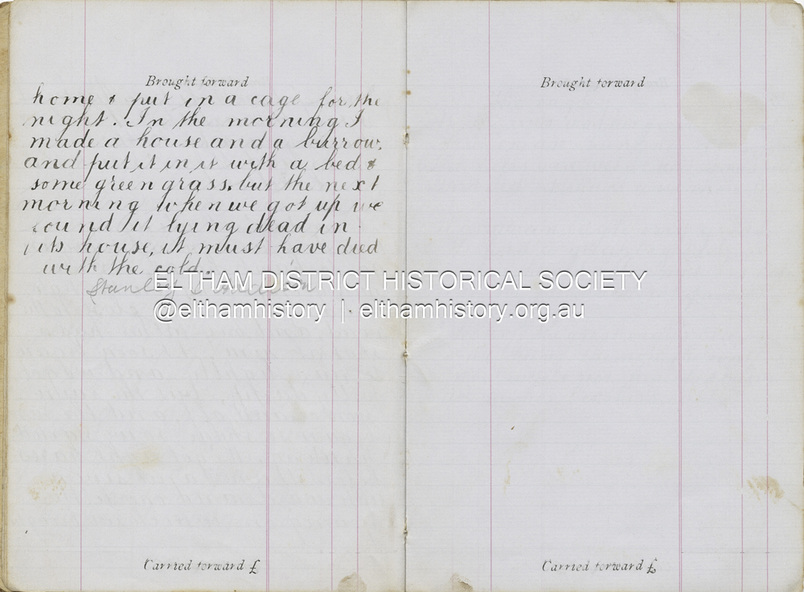 Brought forward
home & put in a cage for the
night. In the morning I
made a house and a burrow.
and put it in it with a bed &
some green grass. but the next
morning when we got up we
found it lying dead in
its house, it must have died
with the cold.
Stanley
Carried forward £
Brought forward
Carried forward £
ELTHAM DISTRICT HISTORICAL SOCIETY
@elthamhistory | elthamhistory.org.au